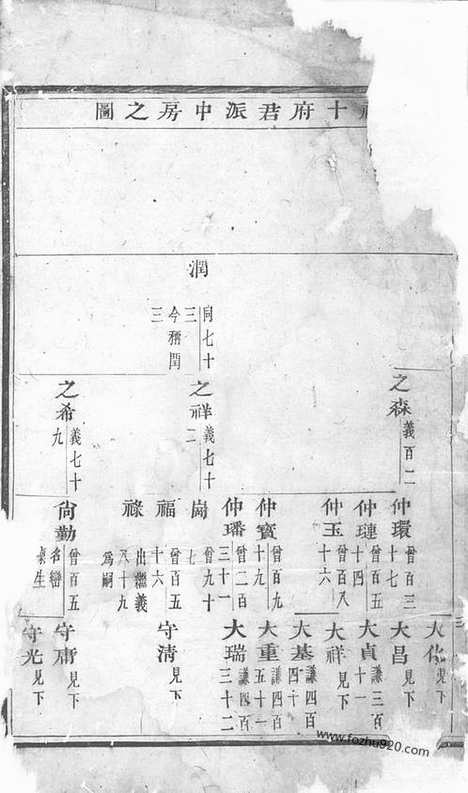 十府君派中房之圖
潤
同七十
三
今稱閏
三
之森
義百二
之祥
義七十
二
之希
義七十
九
仲環
曾百三
十七
仲璉
曾百五
十四
仲玉
曾百八
十六
仲寳
曾百九
十九
仲璠
曾二百
三十一
崗
曾九十
七
福
曾百五
十六
祿
出繼義
八十九
為嗣
尙勤
曾百五
名巒
生
大
見下
大昌
見下
大貞
謙三百
十一
大祥
見下
大基
謙四百
四十
大重
謙四百
五十一
大瑞
謙四百
三十二
守清
見下
守庸
見下
守光
見下
www.fozhu920.com